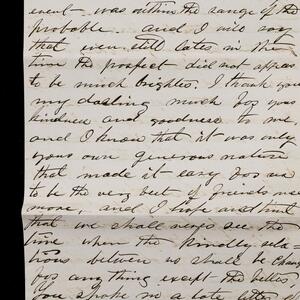 event was within the range of the
probable and I will say
that even still later in the
time the prospect did not appear
to be much brighter. I thank you
my darling much for your
kindness and goodness to me,
and I know that it was only
your own generous nature
that made it easy for us
to be the very best of friends once
more, and I hope and trust
that we shall never see the
time when the kindly rela
tions between us shall be chang
for any thing except the better,
You spoke in a late letter